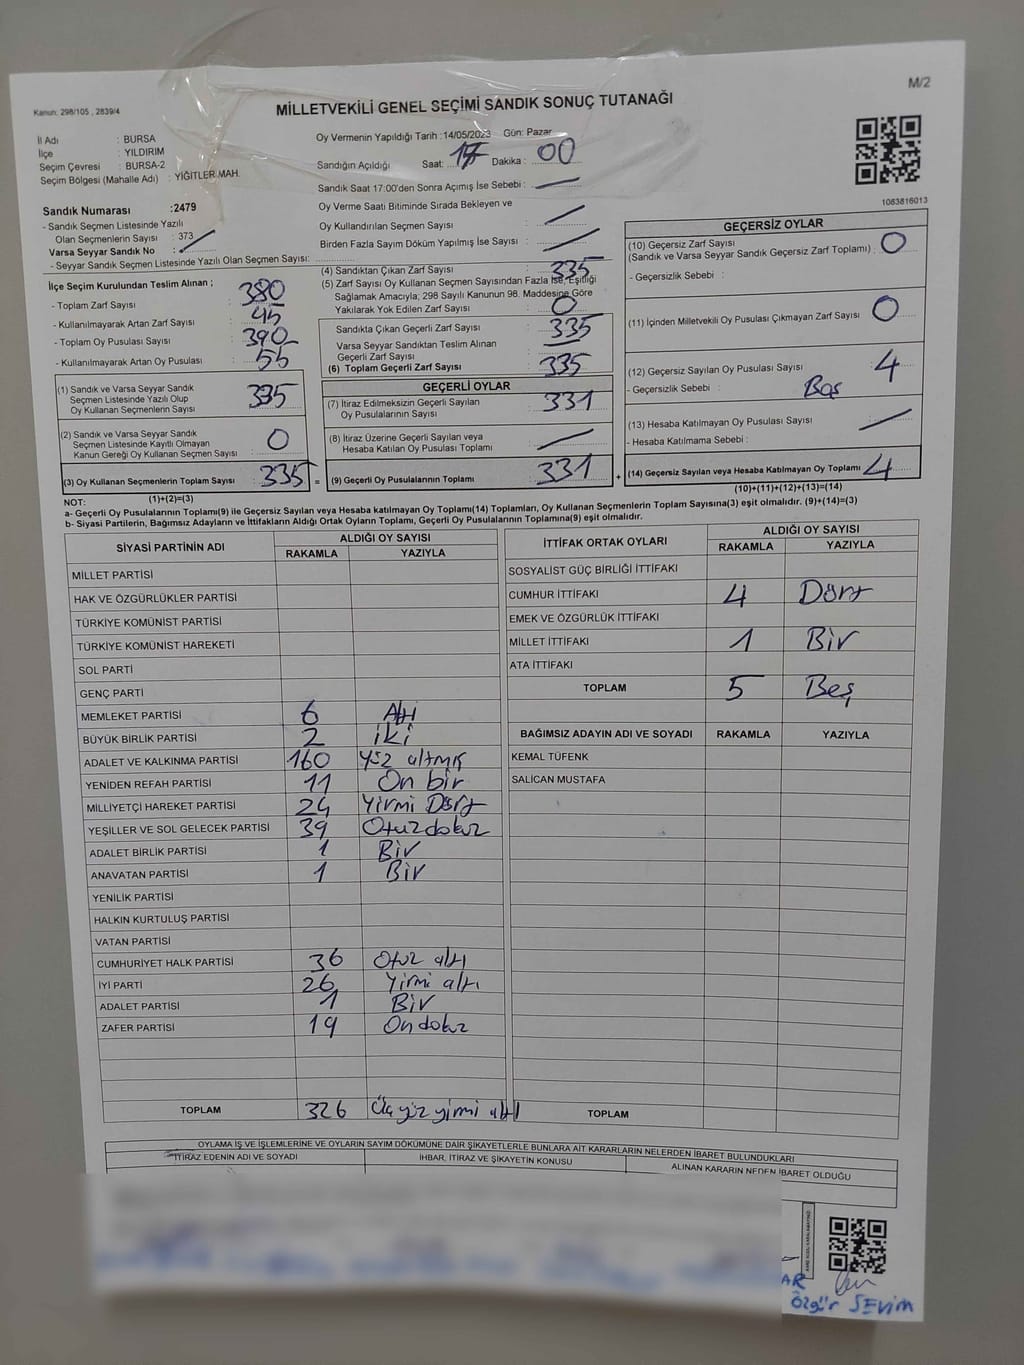 M/2
Kanun: 298/105 , 2839/4
MİLLETVEKİLİ GENEL SEÇİMİ SANDIK SONUÇ TUTANAĞI
İl Adı : BURSA
İlçe : YILDIRIM
Seçim Çevresi : BURSA-2
Seçim Bölgesi (Mahalle Adı) : YİĞİTLER MAH.
Oy Vermenin Yapıldığı Tarih : 14/05/2023 Gün: Pazar
Sandığın Açıldığı Saat: 17 Dakika : 00
Sandık Saat 17:00'den Sonra Açımış İse Sebebi :
Oy Verme Saati Bitiminde Sırada Bekleyen ve
Oy Kullandırılan Seçmen Sayısı
Birden Fazla Sayım Döküm Yapılmış İse Sayısı
1083816013
Sandık Numarası :2479
- Sandık Seçmen Listesinde Yazılı
Olan Seçmenlerin Sayısı : 373
Varsa Seyyar Sandık No :
- Seyyar Sandık Seçmen Listesinde Yazılı Olan Seçmen Sayısı:
İlçe Seçim Kurulundan Teslim Alınan ;
- Toplam Zarf Sayısı : 380
- Kullanılmayarak Artan Zarf Sayısı : 45
- Toplam Oy Pusulası Sayısı : 390
- Kullanılmayarak Artan Oy Pusulası : 55
(1) Sandık ve Varsa Seyyar Sandık
Seçmen Listesinde Yazılı Olup
Oy Kullanan Seçmenlerin Sayısı : 335
(2) Sandık ve Varsa Seyyar Sandık
Seçmen Listesinde Kayıtlı Olmayan
Kanun Gereği Oy Kullanan Seçmen Sayısı : 0
(3) Oy Kullanan Seçmenlerin Toplam Sayısı : 335 =
(4) Sandıktan Çıkan Zarf Sayısı : 335
(5) Zarf Sayısı Oy Kullanan Seçmen Sayısından Fazla ise, Eşitliği
Sağlamak Amacıyla; 298 Sayılı Kanunun 98. Maddesine Göre
Yakılarak Yok Edilen Zarf Sayısı : 0
Sandıkta Çıkan Geçerli Zarf Sayısı : 335
Varsa Seyyar Sandıktan Teslim Alınan
Geçerli Zarf Sayısı :
(6) Toplam Geçerli Zarf Sayısı : 335
GEÇERLİ OYLAR
(7) İtiraz Edilmeksizin Geçerli Sayılan
Oy Pusulalarının Sayısı : 331
(8) İtiraz Üzerine Geçerli Sayılan veya
Hesaba Katılan Oy Pusulası Toplamı :
(9) Geçerli Oy Pusulalarının Toplamı : 331 +
GEÇERSİZ OYLAR
(10) Geçersiz Zarf Sayısı
(Sandık ve Varsa Seyyar Sandık Geçersiz Zarf Toplamı) : 0
- Geçersizlik Sebebi :
(11) İçinden Milletvekili Oy Pusulası Çıkmayan Zarf Sayısı : 0
(12) Geçersiz Sayılan Oy Pusulası Sayısı : 4
- Geçersizlik Sebebi : Boş
(13) Hesaba Katılmayan Oy Pusulası Sayısı :
- Hesaba Katılmama Sebebi :
(14) Geçersiz Sayılan veya Hesaba Katılmayan Oy Toplamı : 4
NOT: (1)+(2)=(3)
(10)+(11)+(12)+(13)=(14)
a- Geçerli Oy Pusulalarının Toplamı(9) ile Geçersiz Sayılan veya Hesaba katılmayan Oy Toplamı(14) Toplamları, Oy Kullanan Seçmenlerin Toplam Sayısına(3) eşit olmalıdır. (9)+(14)=(3)
b- Siyasi Partilerin, Bağımsız Adayların ve İttifakların Aldığı Ortak Oyların Toplamı, Geçerli Oy Pusulalarının Toplamına(9) eşit olmalıdır.
SİYASİ PARTİNİN ADI ALDIĞI OY SAYISI
RAKAMLA YAZIYLA
MİLLET PARTİSİ
HAK VE ÖZGÜRLÜKLER PARTİSİ
TÜRKİYE KOMÜNİST PARTİSİ
TÜRKİYE KOMÜNİST HAREKETİ
SOL PARTİ
GENÇ PARTİ
MEMLEKET PARTİSİ 6 Altı
BÜYÜK BİRLİK PARTİSİ 2 iki
ADALET VE KALKINMA PARTİSİ 160 Yüz altmış
YENİDEN REFAH PARTİSİ 11 On bir
MİLLİYETÇİ HAREKET PARTİSİ 24 Yirmi Dört
YEŞİLLER VE SOL GELECEK PARTİSİ 39 Otuz dokuz
ADALET BİRLİK PARTİSİ 1 Bir
ANAVATAN PARTİSİ 1 Bir
YENİLİK PARTİSİ
HALKIN KURTULUŞ PARTİSİ
VATAN PARTİSİ
CUMHURİYET HALK PARTİSİ 36 Otuz altı
İYİ PARTİ 26 Yirmi altı
ADALET PARTİSİ 1 Bir
ZAFER PARTİSİ 19 On dokuz
TOPLAM 326 Üç yüz yirmi altı
İTTİFAK ORTAK OYLARI ALDIĞI OY SAYISI
RAKAMLA YAZIYLA
SOSYALİST GÜÇ BİRLİĞİ İTTİFAKI
CUMHUR İTTİFAKI 4 Dört
EMEK VE ÖZGÜRLÜK İTTİFAKI
MİLLET İTTİFAKI 1 Bir
ATA İTTİFAKI
TOPLAM 5 Beş
BAĞIMSIZ ADAYIN ADI VE SOYADI RAKAMLA YAZIYLA
KEMAL TÜFENK
SALİCAN MUSTAFA
TOPLAM
OYLAMA İŞ VE İŞLEMLERİNE VE OYLARIN SAYIM DÖKÜMÜNE DAİR ŞİKAYETLERLE BUNLARA AİT KARARLARIN NELERDEN İBARET BULUNDUKLARI
İTİRAZ EDENİN ADI VE SOYADI İHBAR, İTİRAZ VE ŞİKAYETİN KONUSU ALINAN KARARIN NEDEN İBARET OLDUĞU
AR
Özgür SEVİM